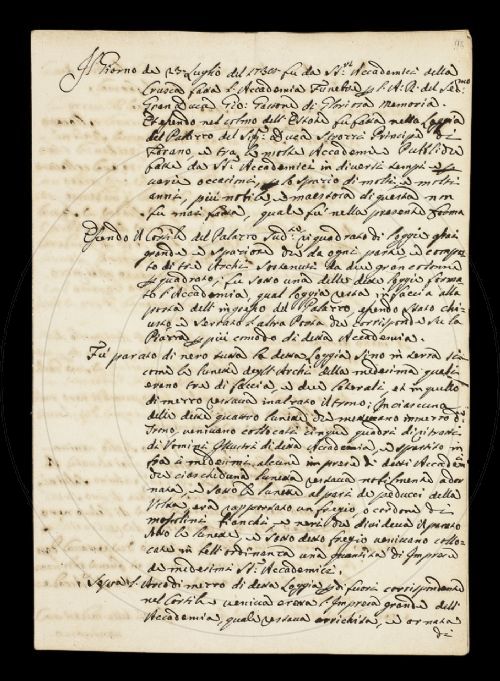 Il Giorno de 27 Luglio del 1730 fu da SS.ri Accademici della
Crusca fatta l'Accademia Funebre p l'A. R. del Ser.mo
Gran Duca Gio: Gastone di Gloriosa memoria.
Essendo nel colmo dell'Estate fu fatta nella Loggia
del Palazzo del Sig.r Duca Strozzi Principe di
Forano, e tra le molte Accademie Pubbliche
fatte da SS.ri Accademici in diversi tempi e p
varie occasioni p lo spazio di molti, e molti
anni, più nobile, e maestosa di questa non
fu mai fatta, quale fu nella presente forma
Essendo il Cortile del Palazzo Sud.to riquadrato di loggie assai
grande, e spaziose che da ogni parte, e
di tre Archi Sostenuti da due gran colonne
p quadrato, fu Sotto una delle dette loggie forma
ta l'Accademia, qual loggia resta in faccia alla
porta dell'ingresso del Palazzo, essendo stato chi
uso, e Serrato l'altra Porta che corrisponde Su la
Piazza p più comodo di detta Accademia.
Fu parato di nero tutta la detta loggia Sino in terra Sic
come le lunette degli Archi della medesima quali
erano tre di faccia, e due laterali et in quello
di mezzo restava inalzato il trono; In ciascuna
delle dette quattro lunette che mettevano in mezzo il
trono, venivano collocati cinque quadri di ritratti
di Uomini Illustri di detta Accademia, e
alcune imprese di detti Accadem
che ciascheduna lunetta restava nobilmente ador
nata, e Sotto le lunette al pari de peducci della
Volta era rapportato un fregio, o cordone di
bianchi, e neri che divideva il parato
Sotto le lunette, e Sotto detto fregio venivano collo
cate in bell'ordinanza una quantità di Imprese
de medesimi SS.ri Accademici.
Sopra l'Arco di mezzo di detta Loggia p di fuori corrispondente
nel Cortile veniva eretta l'Impresa grande dell'
Accademia, quale restava arrichita, e ornata
di